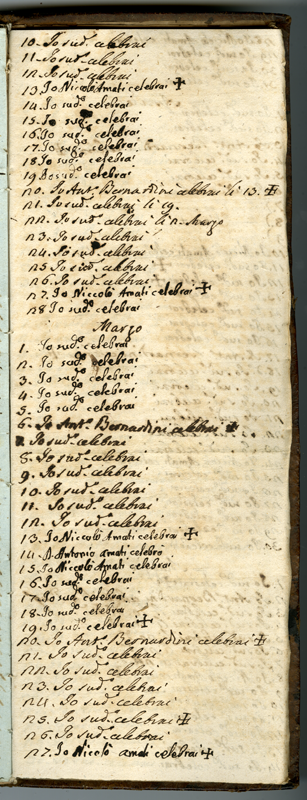 10. Io sud.o celebrai
11. Io sud.o celebrai
12. Io sud.o celebrai
13. Io Nicolò Amati celebrai ✠
14. Io sud.o celebrai
15. Io sud.o celebrai
16. Io sud.o celebrai
17. Io sud.o celebrai
18. Io sud.o celebrai
19. Io sud.o celebrai
20. Io Ant.o Bernardini celebrai li 13. ✠
21. Io sud.o celebrai li 19.
22. Io sud.o celebrai li 2. Marzo
23. Io sud.o celebrai
24. Io sud.o celebrai
25 Io sud.o celebrai
26. Io sud.o celebrai
27. Io Niccolò Amati celebrai ✠
28 Io sud.o celebrai
Marzo
1. Io sud.o celebrai
2. Io sud.o celebrai
3. Io sud.o celebrai
4. Io sud.o celebrai
5. Io sud.o celebrai
6. Io Ant.o Bernardini celebrai ✠
7. Io sud.o celebrai
8. Io sud.o celebrai
9. Io sud.o celebrai
10. Io sud.o celebrai
11. Io sud.o celebrai
12. Io sud.o celebrai
13. Io Niccolò Amati celebrai ✠
14. D Antonio amati celebrò
15. Io Niccolò Amati celebrai
16. Io sud.o celebrai
17. Io sud.o celebrai
18. Io sud.o celebrai
19. Io sud.o celebrai ✠
20. Io Ant.o Bernardini celebrai ✠
21. Io sud.o celebrai
22. Io sud.o celebrai
23. Io sud.o celebrai
24. Io sud.o celebrai
25. Io sud.o celebrai ✠
26. Io sud.o celebrai
27. Io Nicolò amati celebrai ✠